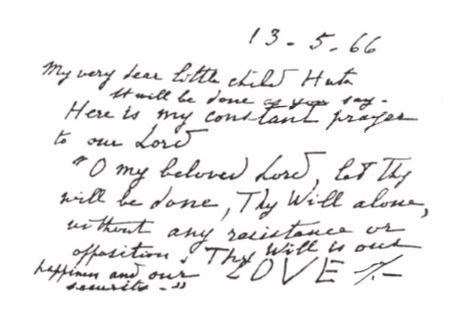 13-5-66
My very dear little child Huta
It will be done as you say.
Here is my constant prayer
to our Lord
"O my beloved Lord, let Thy
will be done, Thy Will alone,
without any resistance or
opposition. Thy Will is our
happiness and our LOVE
security."